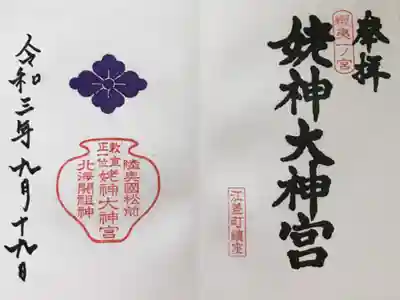 奉拝
蝦夷一ノ宮
姥神大神宮
江差町鎮座
陸奥國松前
勅宣
正一位
姥神大神宮
北海開祖神
令和三年九月十九日